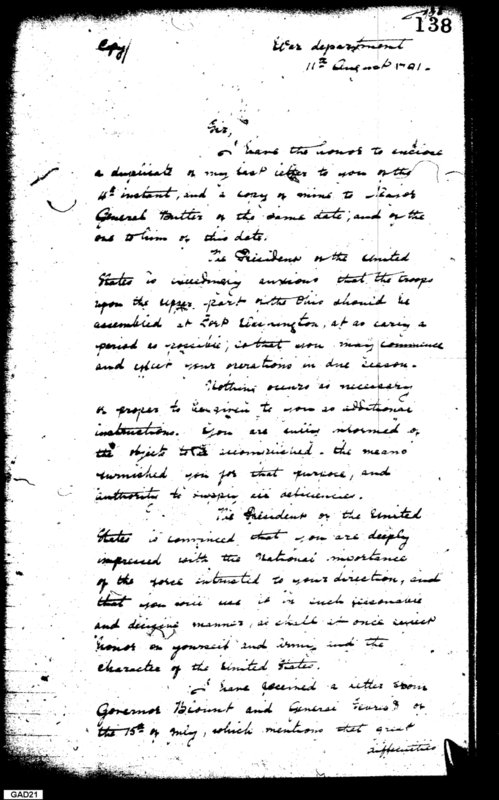 138
Copy/
War department
11th August 1791.
Sir,
I have the honor to enclose
a duplicate of my last letter to you of the
4th instant, and a copy of mine to Major
General Butler of the same date, and of the
one to him of this date.
The President of the United
States is exceedingly anxious that the troops
upon the upper part of the Ohio should be
assembled at Fort Washington, at as early a
period as possible, so that you may commence
and effect your operations in due season.
Nothing occurs as necessary
or proper to be given to you as additional
instructions. You are fully informed of
the objects to be accomplished - the means
furnished you for that purpose, and
authority to supply all deficiencies.
The President of the United
States is convinced that you are deeply
impressed with the National importance
of the force intrusted to your direction, and
that you will use it in such
and decisive manner, as shall at once reflect
honor on yourself and army, and the
character of the United States.
I have received a letter from
Governor Blount and General Sevier of
the 15th of July, which mentions that great
difficulties
GAD21